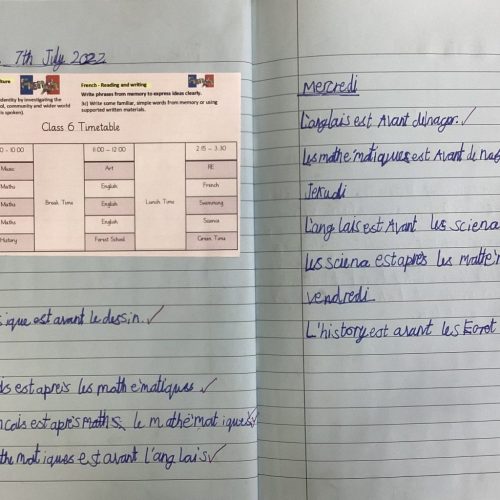 7th July 2022
ulture
French - Reading and writing
identity by investigating the
ol, community and wider world
is spoken).
Write phrases from memory to express ideas clearly.
3c) Write some familiar, simple words from memory or using
supported written materials.
Class 6 Timetable
0 - 10:00
11:00 - 12:00
2:15 - 3:30
Music
Break Time
Art
Lunch Time
RE
Maths
English
French
Maths
English
Swimming
Maths
English
Science
History
Forest School
Green Time
sique est avant le dessin.
is est après les mathématiques
ncais est après maths le mathématiques
thematiques est avant l'anglais
Mercredi
L'anglais est Avant de nager.
Les mathématiques est Avant de nag
Jeudi
L'anglais est Avant les sciena
Les sciena est après les mathém
vendredi
L'history est avant les